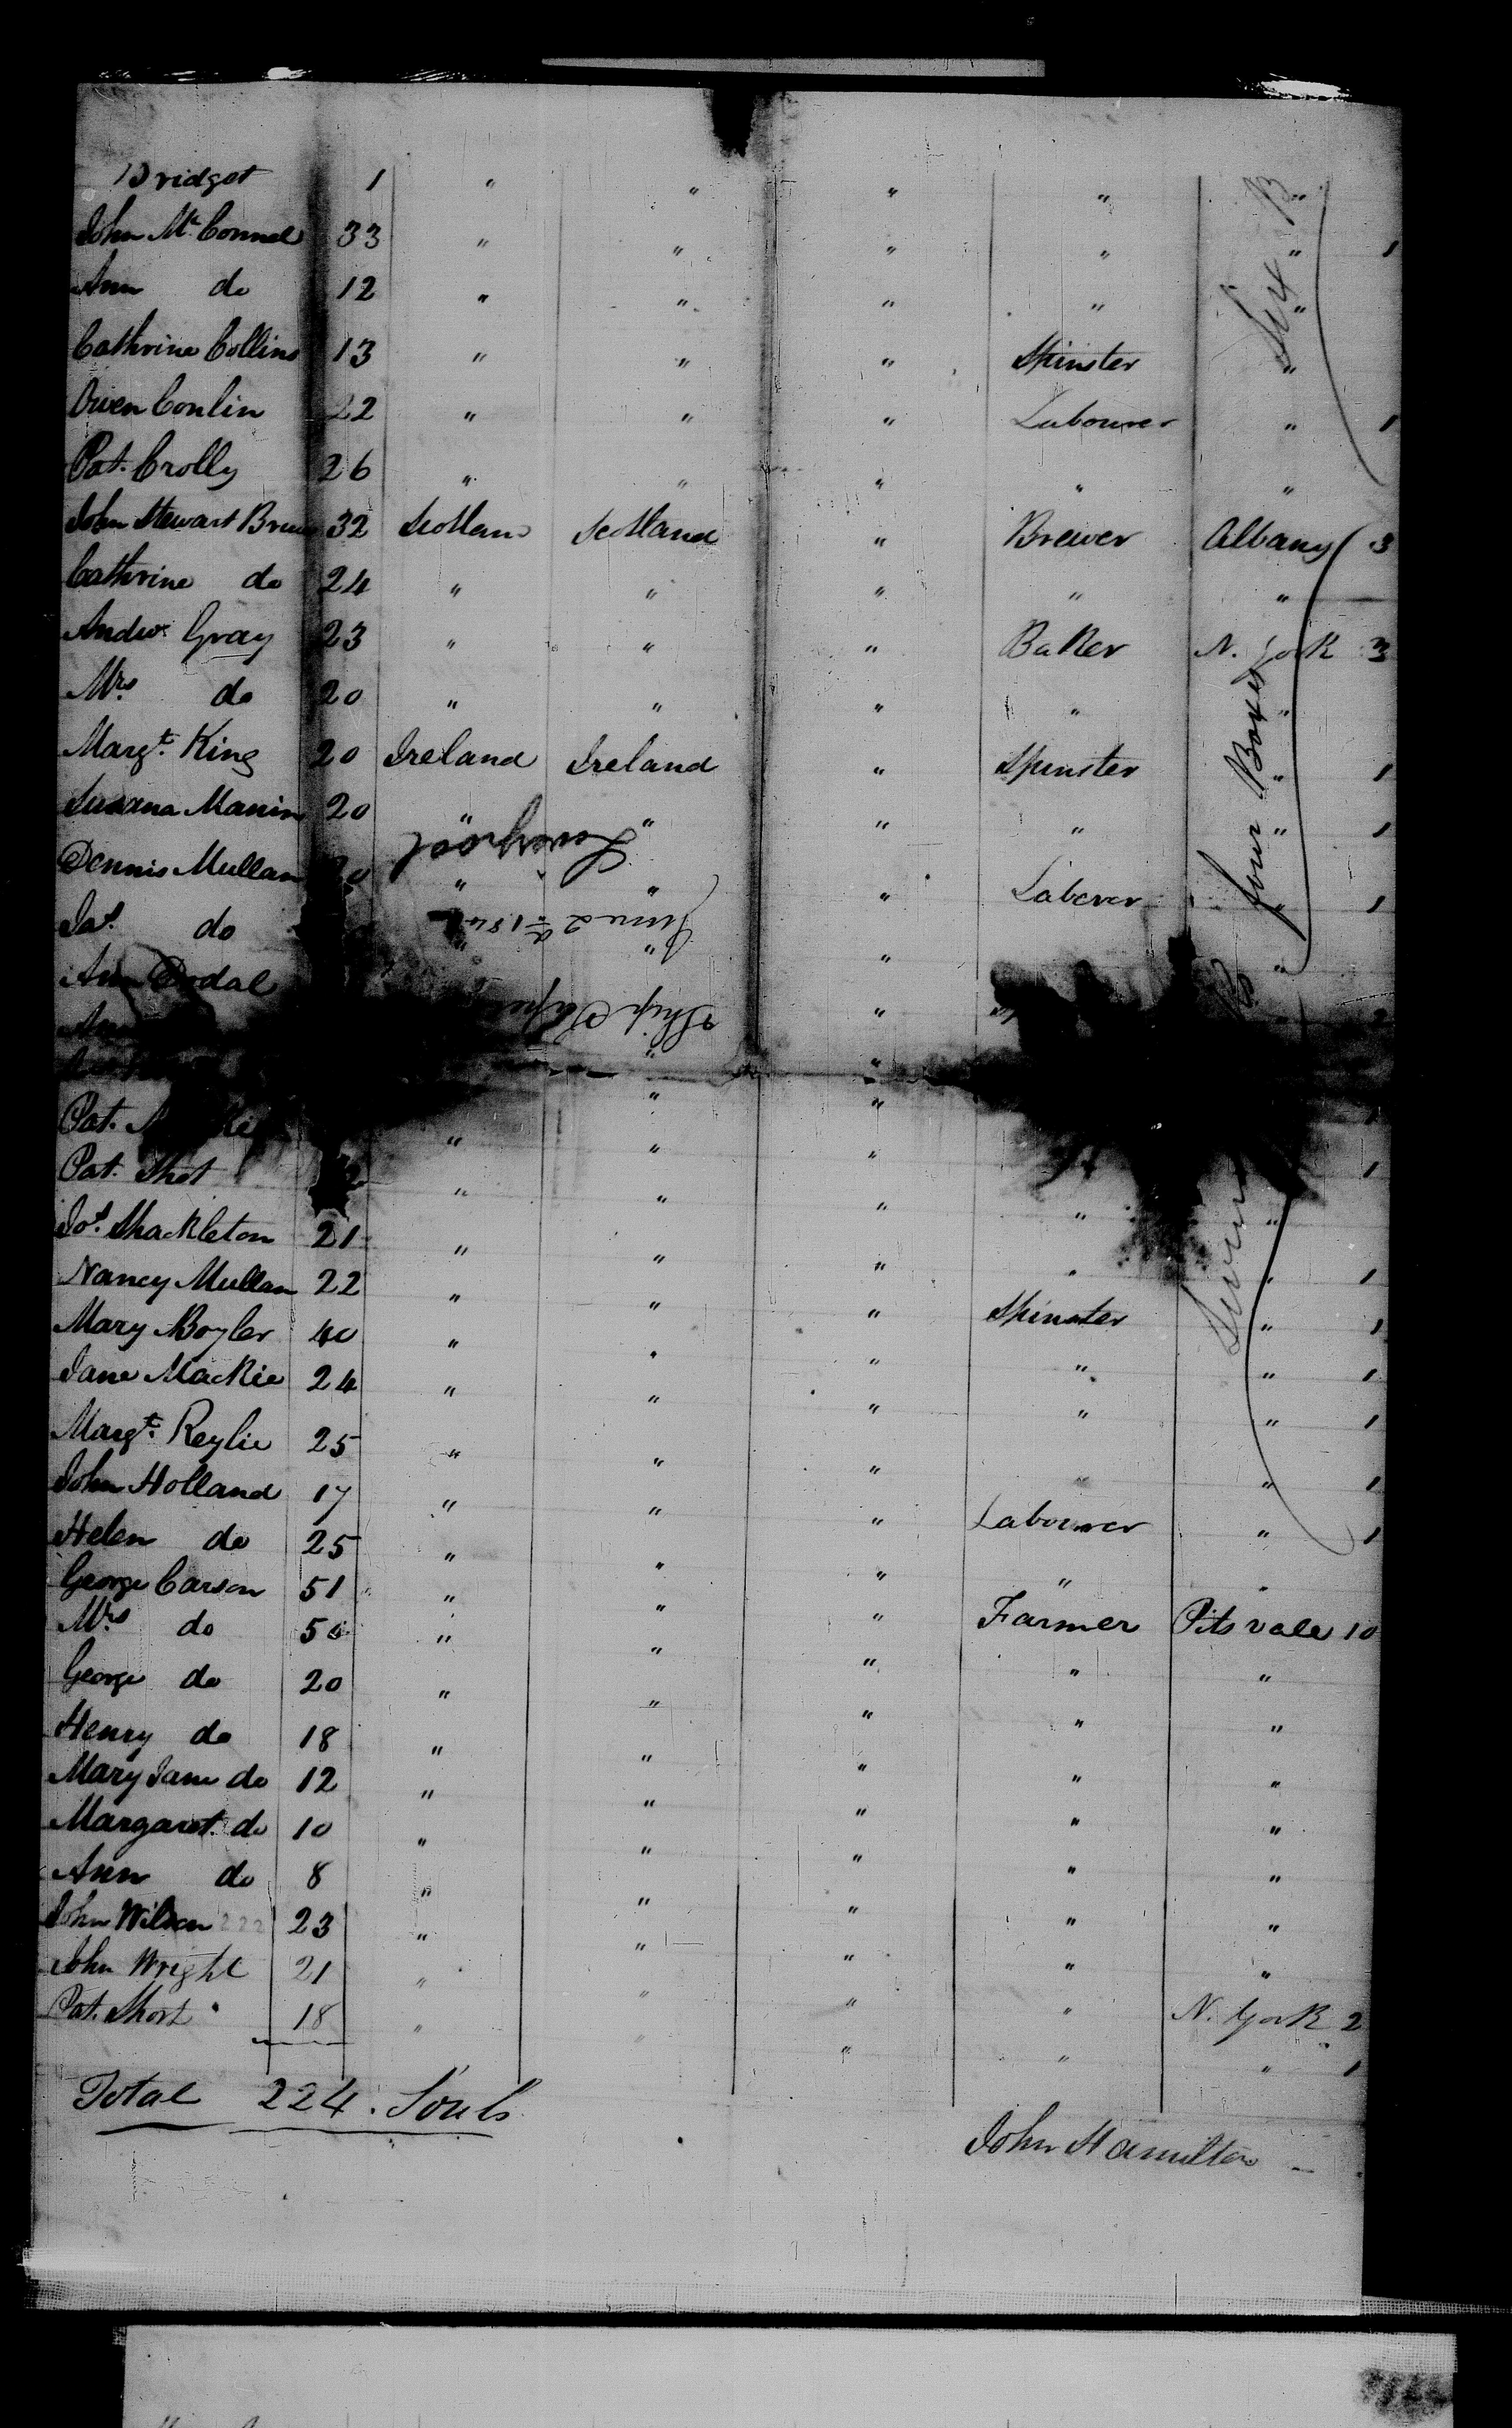 Bridget 1 " " " " "
John McConnel 33 " " " " " 1
Ann do 12 " " " " "
Cathrine Collins 13 " " " Spinster "
Owen Conlin 22 " " " Labourer " 1
Pat. Crolly 26 " " " " "
John Stewart 32 Scotland Scotland " Brewer Albany 3
Cathrine do 24 " " " " "
Andw. Gray 23 " " " Baker N. York 3
Mrs do 20 " " " " "
Margt. King 20 Ireland Ireland " Spinster " 1
Susana Manin 20 " " " " " 1
Dennis Mullan " " " Laberer " 1
Jas. do " " " "
Ann Dodal "
Ann " "
" "
Pat. " " " 1
Pat. Shot " " " 1
Jos. Shackleton 21 " " " " "
Nancy Mullan 22 " " " " " 1
Mary Boyler 40 " " " Spinster " 1
Jane Mackie 24 " " " " " 1
Margt. Reylie 25 " " " " " 1
John Holland 17 " " " Labourer " 1
Helen do 25 " " " " "
George Carson 51 " " " Farmer Pitsvale 10
Mrs do 50 " " " " "
George do 20 " " " " "
Henry do 18 " " " " "
Mary Jane do 12 " " " " "
Margaret do 10 " " " " "
Ann do 8 " " " " "
John Wilson 222 23 " " " " "
John Wright 21 " " " " N. York 2
Pat. Short 18 " " " " " 1
Total 224. Souls
John Hamilton
Liverpool
Ship
Six B
four Boxes
Seven